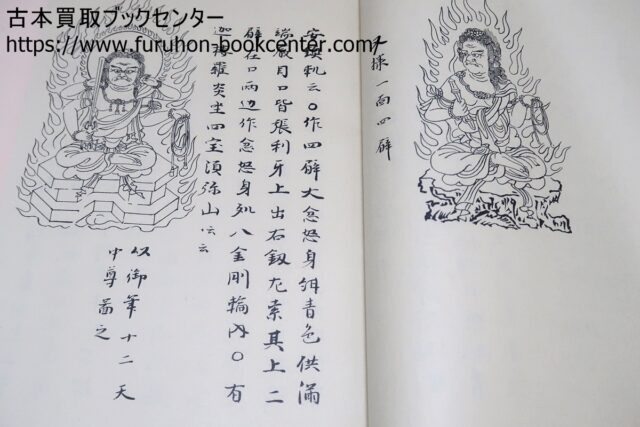 古本買取ブックセンター
https://www.furuhon-bookcenter.com/
様一面四臂
安鎮軌云〇作四臂大忿怒身紺青色供滿
端嚴目口皆張利牙上出右釼左索其上二
臂在口兩邊作忿怒印身処八金剛輪内〇有
迦樓羅炎坐四宝須弥山云云
以御筆十二天
中尊啚之